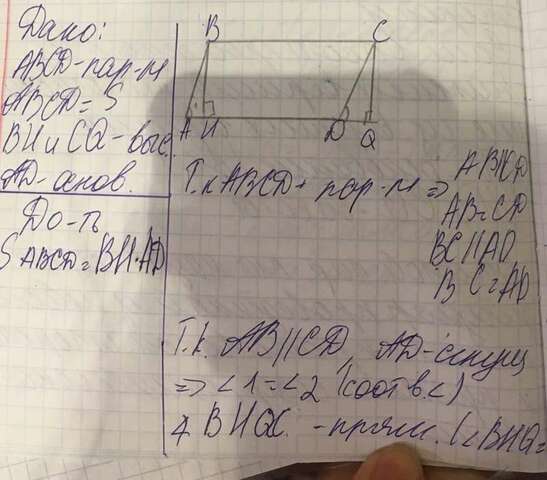 Дано:
ABCD-пар-м
ABCD=S
BH и CQ-выс.
AD-основ.
До-ть
SABCD=BH·AD
B C
A H D Q
Т.к ABCD- пар-м => AB||CD
AB=CD
BC||AD
BC=AD
Т.к. AB||CD, AD-секущ
=> ∠1=∠2 (соотв.∠)
BHQC -прям. (∠BHQ=